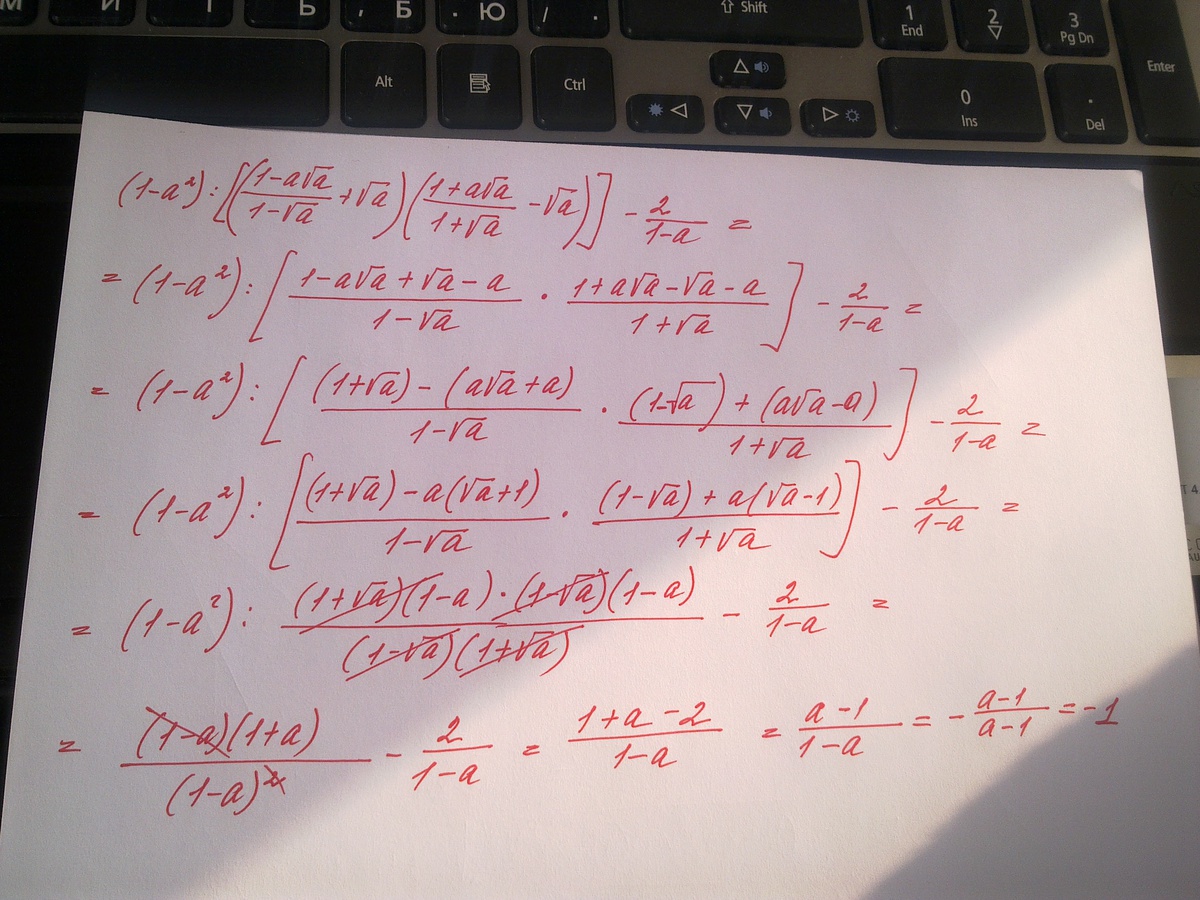 М И Ь , Б . Ю / . ⇧ Shift 1 End 2 ▽ 3 Pg Dn
Alt Ctrl △ ◁ ▽ ▷ 0 Ins . Del Enter
(1-a²):[((1-a√a)/(1-√a)+√a)((1+a√a)/(1+√a)-√a)] - 2/(1-a) =
= (1-a²):[(1-a√a+√a-a)/(1-√a) · (1+a√a-√a-a)/(1+√a)] - 2/(1-a) =
= (1-a²):[((1+√a)-(a√a+a))/(1-√a) · ((1-√a)+(a√a-a))/(1+√a)] - 2/(1-a) =
= (1-a²):[((1+√a)-a(√a+1))/(1-√a) · ((1-√a)+a(√a-1))/(1+√a)] - 2/(1-a) =
= (1-a²): ((1+√a)(1-a)·(1-√a)(1-a))/((1-√a)(1+√a)) - 2/(1-a) =
= ((1-a)(1+a))/((1-a)²) - 2/(1-a) = (1+a-2)/(1-a) = (a-1)/(1-a) = -(a-1)/(a-1) = -1